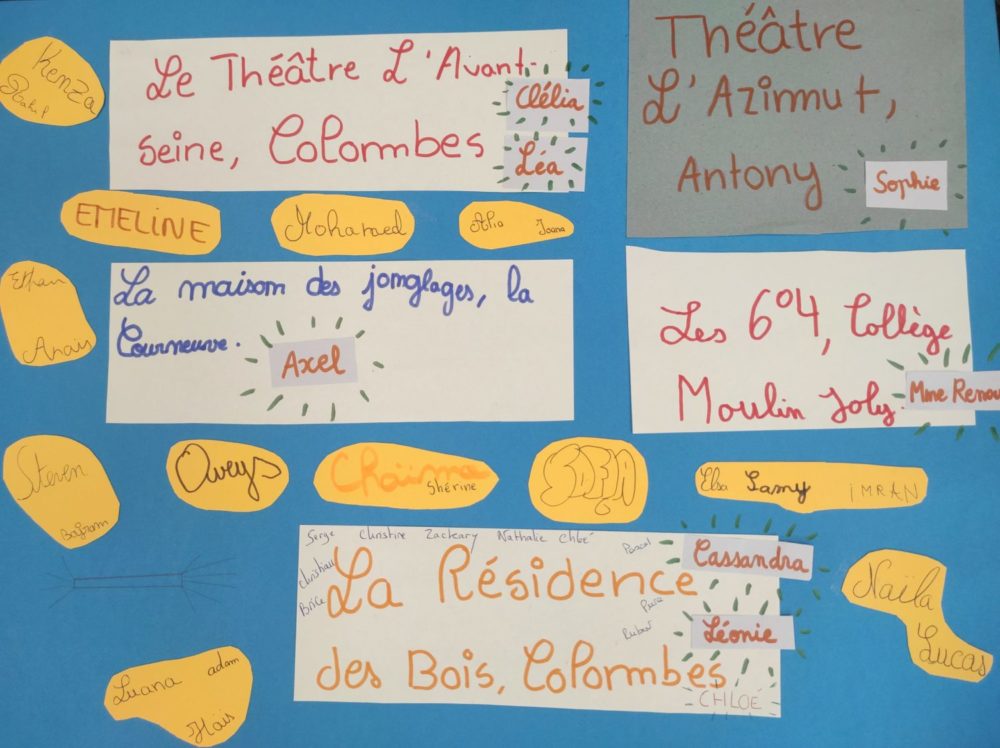 Kenza
Le Théâtre L'Avant-
seine, Colombes
Clélia
Léa
Théâtre
L'Azimut,
Antony
Sophie
EMELINE
Mohamed
Alia Joana
Ethan
Anaïs
La maison des jonglages, la
Courneuve.
Axel
Les 6°4, Collège
Moulin Joly.
Mme Renou
Steven
Bajram
Oveys
Chaïma
Shérine
SOFIA
Elsa Lamy IMRAN
Serge Christine Zackeary Nathalie Chloé
Pascal
Cassandra
Christiane
Brice
La Résidence
Léonie
des Bois, Colombes
CHLOÉ
Naïla
Lucas
Luana adam